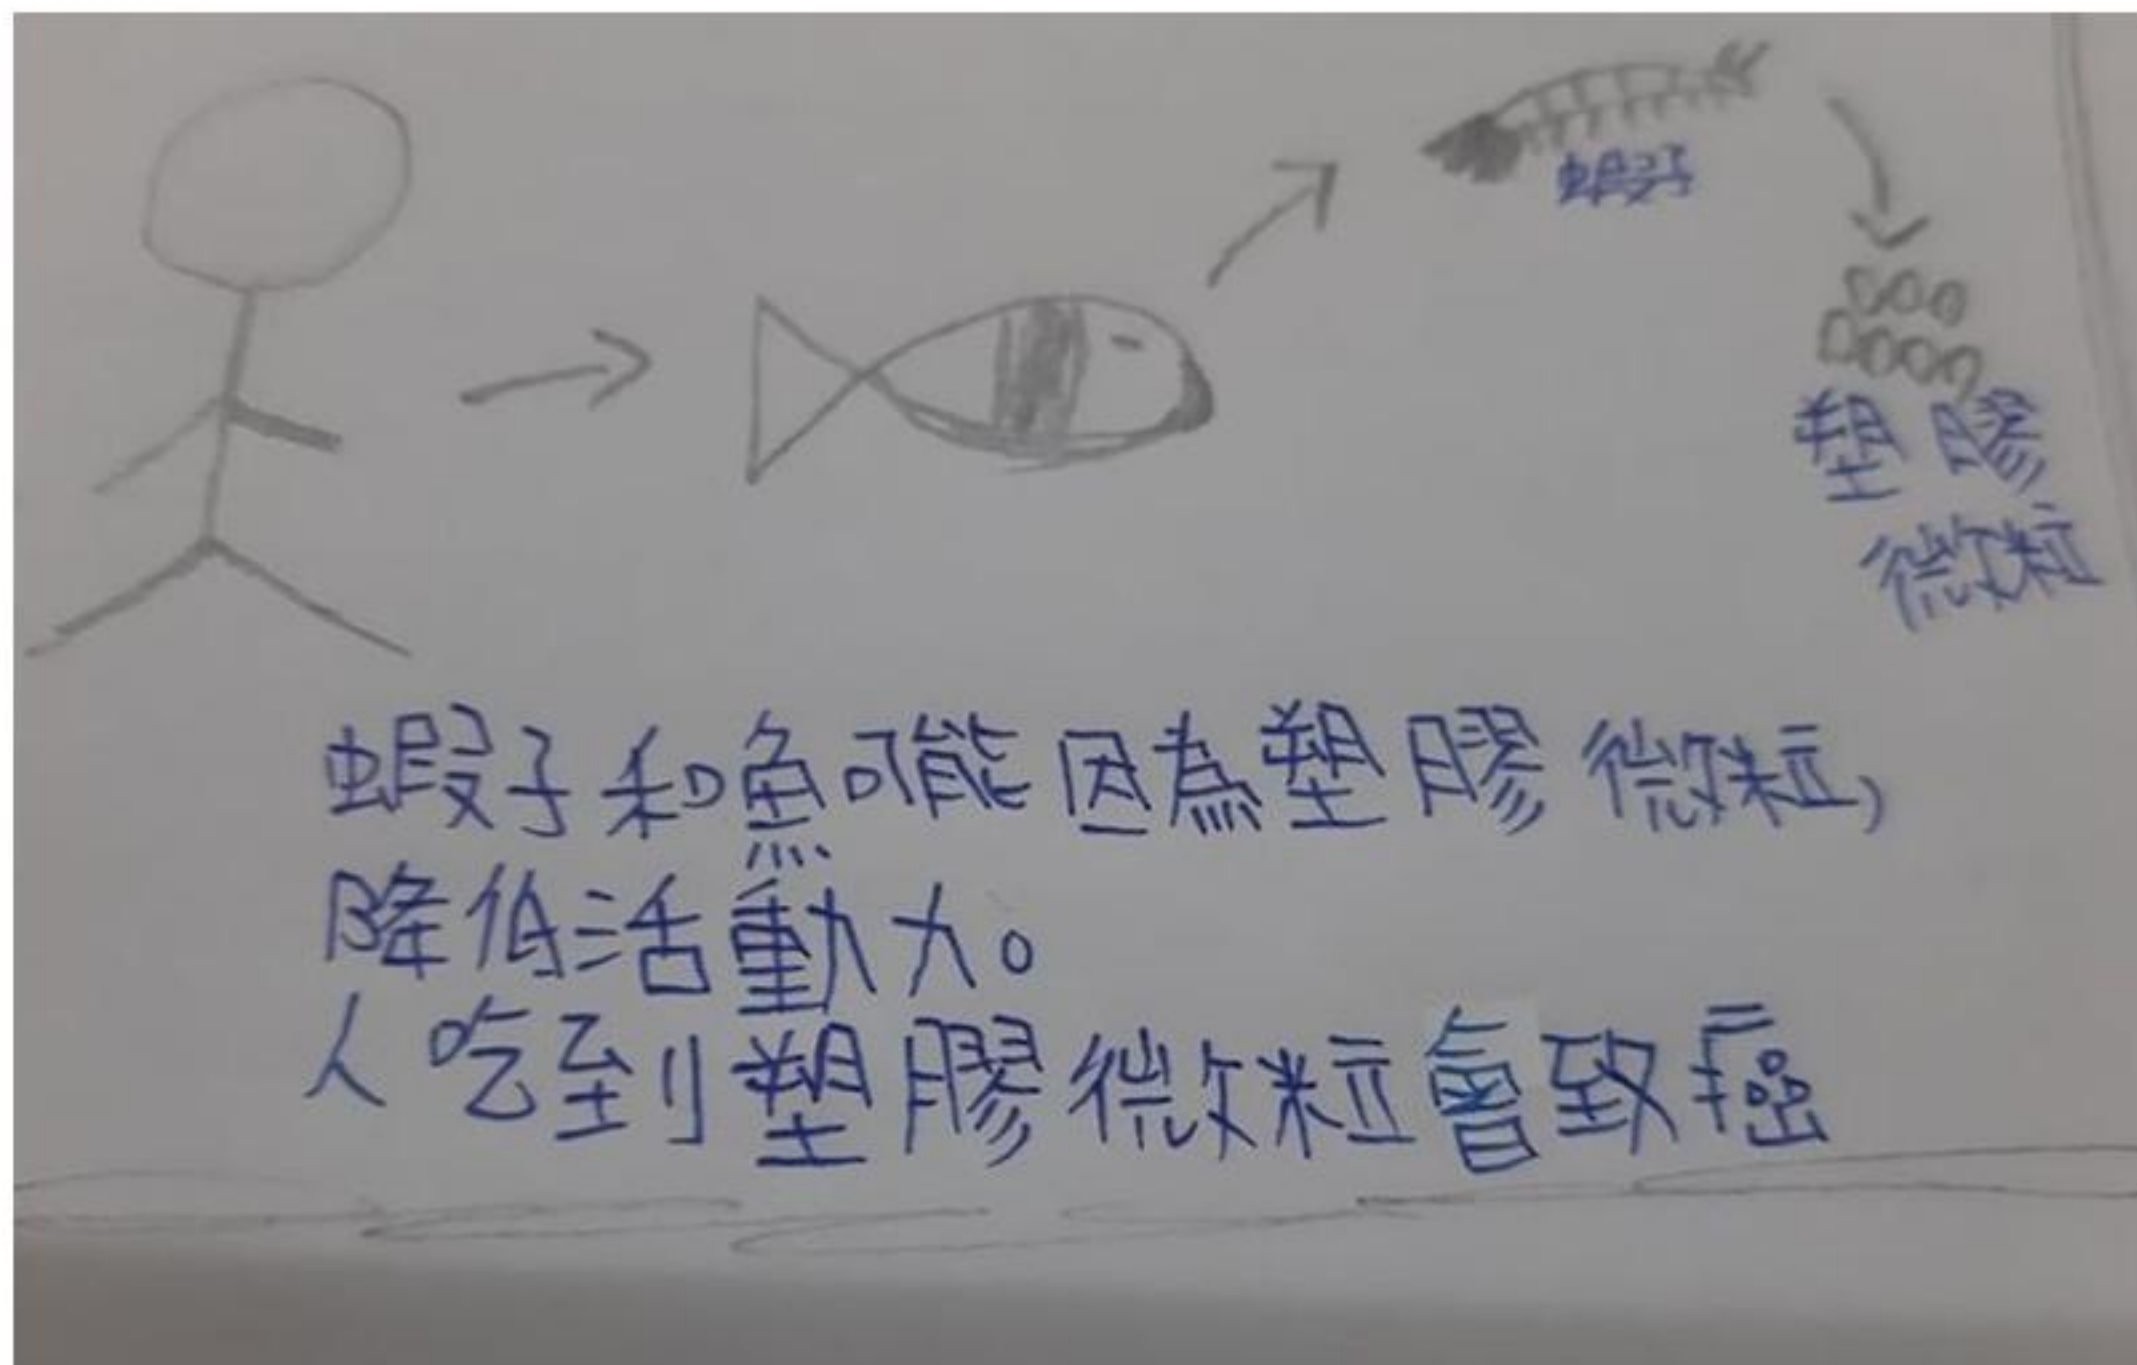 蝦子
塑膠
微粒
蝦子和魚可能因為塑膠微粒,
降低活動力。
人吃到塑膠微粒會致癌